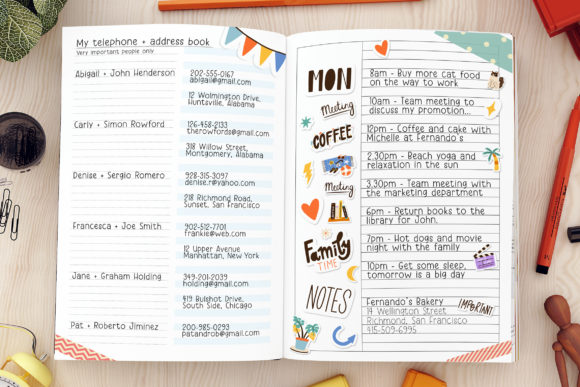 My telephone + address book
Very important people only
Abigail + John Henderson
202-555-0167
abigail@gmail.com
12 Wolmington Drive,
Huntsville, Alabama
Carly + Simon Rowford
126-458-2133
therowfords@gmail.com
318 Willow Street,
Montgomery, Alabama
Denise + Sergio Romero
928-315-3097
denise.r@yahoo.com
218 Richmond Road,
Sunset, San Francisco
Francesca + Joe Smith
902-512-7701
frankie@web.com
12 Upper Avenue
Manhattan, New York
Jane + Graham Holding
349-201-2039
holding@gmail.com
419 Bulshot Drive,
South Side, Chicago
Pat + Roberto Jiminez
200-985-0293
patandrob@gmail.com
MON
8am - Buy more cat food
on the way to work
Meeting
10am - Team meeting to
discuss my promotion...
COFFEE
12pm - Coffee and cake with
Michelle at Fernando's
2.30pm - Beach yoga and
relaxation in the sun
Meeting
3.30pm - Team meeting with
the marketing department
6pm - Return books to the
library for John.
Family
TIME
7pm - Hot dogs and movie
night with the family
10pm - Get some sleep,
tomorrow is a big day
NOTES
Fernando's Bakery
IMPORTANT
14 Wellington Street
Richmond, San Francisco
415-509-6995